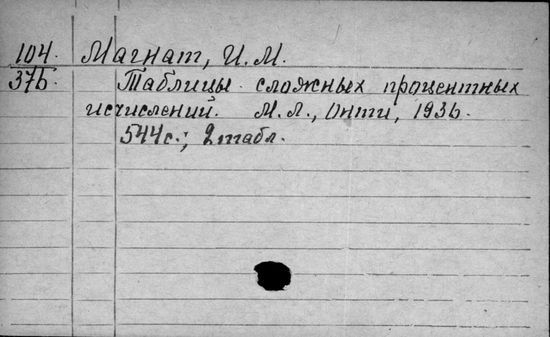 104. Магнат, И. М.
376. Таблицы сложных процентных
исчислений. М. Л., Онти, 1936.
544 с.; 2 табл.